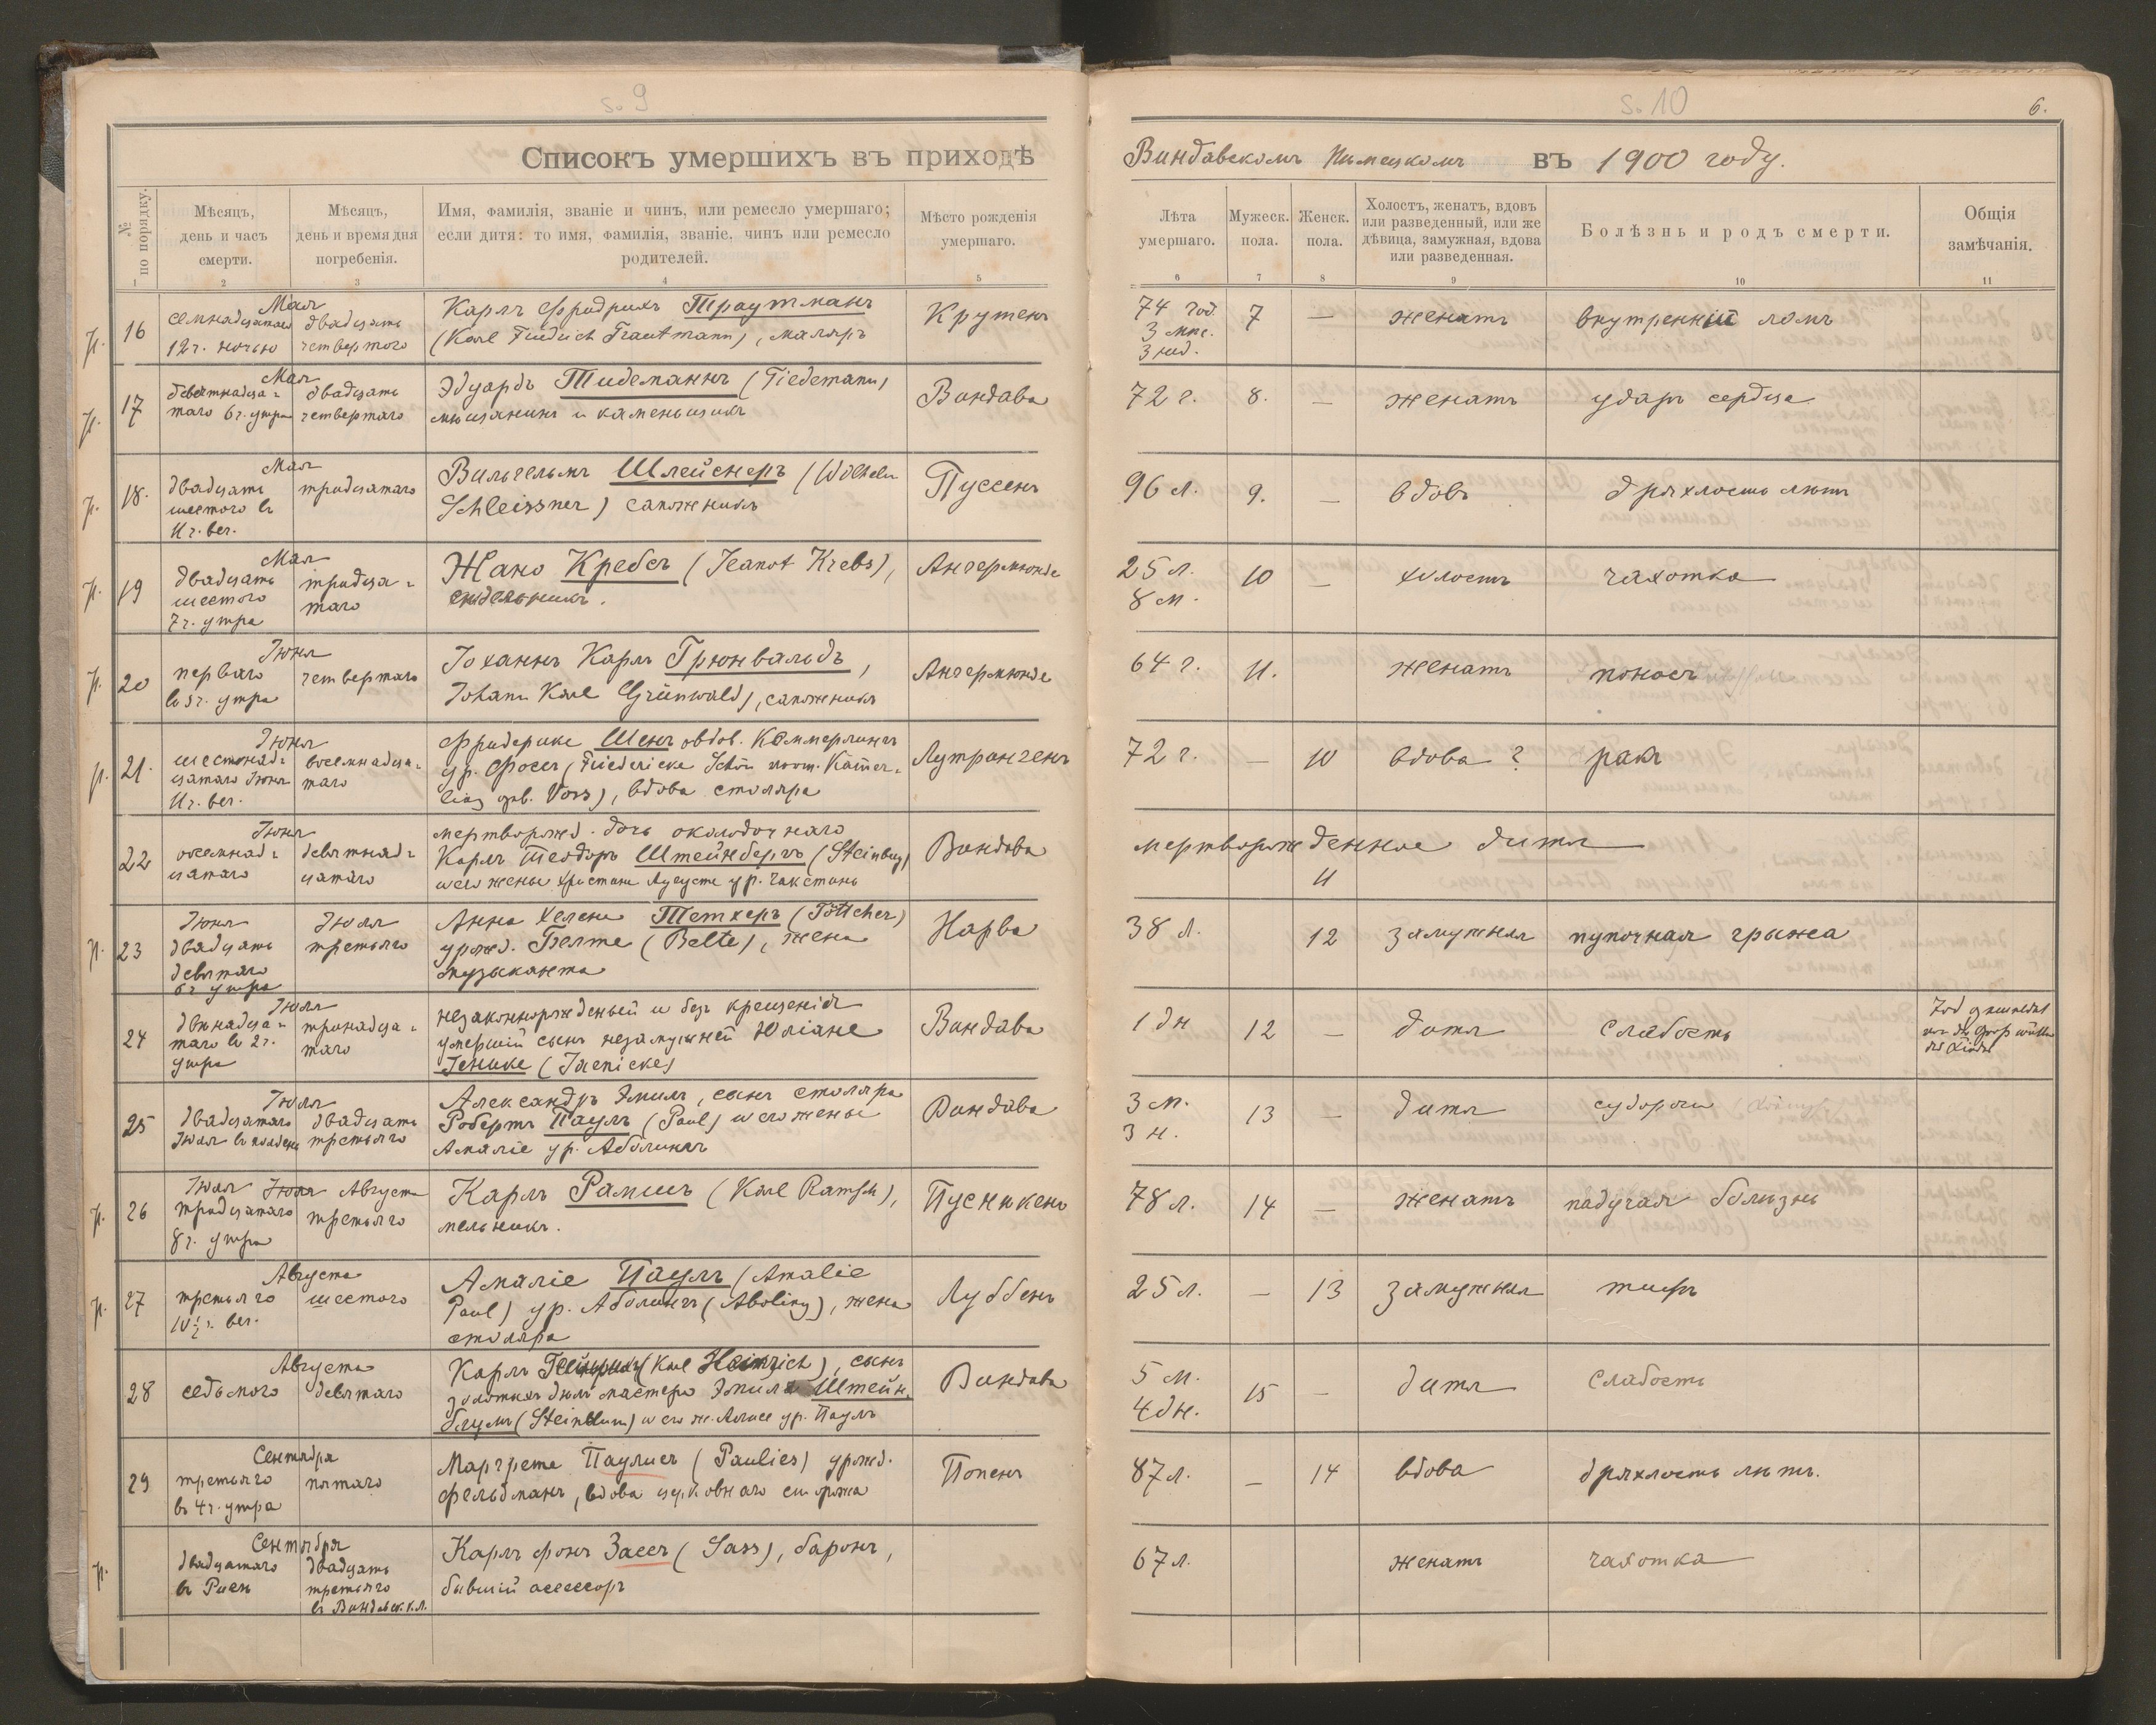 S. 9
Списокъ умершихъ въ приходѣ
№ по порядку.
Мѣсяцъ, день и часъ смерти.
Мѣсяцъ, день и время дня погребенія.
Имя, фамилія, званіе и чинъ, или ремесло умершаго;
если дитя: то имя, фамилія, званіе, чинъ или ремесло
родителей.
Мѣсто рожденія умершаго.
1 2 3 4 5
р. 16
Мая
семнадцатаго двадцать
12 ч. ночью четвертаго
Карлъ Фридрихъ Траутманъ
(Karl Friedrich Trautmann), маляръ
Крутенъ
р. 17
Мая
девятнадца- двадцать
таго 6 ч. утра четвертаго
Эдуардъ Тидеманнъ (Tiedemann)
мѣщанинъ и каменьщикъ
Виндава
р. 18.
Мая
двадцать тридцатаго
шестого въ
11 ч. веч.
Вильгельмъ Шлейснеръ (Wilhelm
Schleissner) сапожникъ
Пуссенъ
р. 19
Мая
двадцать тридца-
шестого таго
7 ч. утра
Жано Кребсъ (Jeanot Krebs),
сѣдельникъ.
Ангермюнде
р. 20
Іюня
перваго четвертаго
въ 5 ч. утра
Іоханнъ Карлъ Грюнвальдъ,
Johann Karl Grünwald), сапожникъ
Ангермюнде
р. 21.
Іюня
шестнад- восемнадца-
цатаго Іюня таго
11 ч. веч.
Фридерике Шенъ овдов. Каммерлингъ
ур. Фоссъ (Friederieke Schön verw. Kamer-
ling geb. Voss), вдова столяра
Лутрингенъ
22
Іюня
осемнад- девятнад-
цатаго цатаго
мертворожд. дочь околодочнаго
Карлъ Теодоръ Штейнбергъ (Steinberg)
и его жены Христине Аугусте ур. Чакстинъ
Виндава
р. 23
Іюня Іюля
двадцать третьяго
девятаго
6 ч утра
Анна Хелене Теткеръ (Töttcher)
урожд. Белте (Belte), жена
музыканта
Нарва
24
Іюля
двѣнадца- тринадца-
таго въ 2 ч. таго
утра
незаконнорожденный и безъ крещенія
умершій сынъ незамужней Юліане
Іенике (Jaenicke)
Виндава
25
Іюля
двадцатаго двадцать
Іюля въ полдень третьяго
Александръ Эмиль, сынъ столяра
Робертъ Пауль (Paul) и его жены
Амаліе ур. Аболингъ
Виндава
р. 26
Іюля Іюля Августа
тридцатаго третьяго
8 ч. утра
Карлъ Рамшъ (Karl Ramsch),
мельникъ.
Пуснѣкенъ
р. 27
Августа
третьяго шестого
10½ ч. веч.
Амаліе Пауль (Amalie
Paul) ур. Аболингъ (Aboling), жена
столяра
Луббенъ
28
Августа
седьмого девятаго
Карлъ Гейнрихъ (Karl Heinrich), сынъ
золотыхъ дѣлъ мастера Эмиля Штейн-
блумъ (Steinblum) и его ж. Алисе ур. Пауль
Виндава
29
Сентября
третьяго пятаго
въ 4 ч. утра
Маргрета Паулисъ (Paulies) урожд.
Фельдманъ, вдова церковнаго сторожа
Попенъ
р.
Сентября
двадцатаго двадцать
въ Ригѣ третьяго
въ Виндавск. к.л.
Карлъ фонъ Зассъ (Sass), баронъ,
бывшій асессоръ
S. 10
6.
Виндавскомъ Нѣмецкомъ въ 1900 году.
Лѣта умершаго.
Мужеск. пола.
Женск. пола.
Холостъ, женатъ, вдовъ
или разведенный, или же
дѣвица, замужная, вдова
или разведенная.
Болѣзнь и родъ смерти.
Общія замѣчанія.
6 7 8 9 10 11
74 год. 3 мѣс. 3 нед. 7 — женатъ внутренній ломъ
72 г. 8. — женатъ ударъ сердца
96 л. 9. — вдовъ дряхлость лѣтъ
25 л. 8 м. 10 — холостъ чахотка
64 г. 11. женатъ поносъ
72 г. — 10 вдова ? ракъ
мертворожденное дитя
11
38 л. 12 замужняя пупочная грыжа
1 дн 12 — дитя слабость
3 м. 3 н. 13 — дитя судороги
78 л. 14 — женатъ падучая болѣзнь
25 л. — 13 замужняя тифъ
5 м. 4 дн. 15 — дитя слабость
87 л. — 14 вдова дряхлость лѣтъ.
67 л. женатъ чахотка